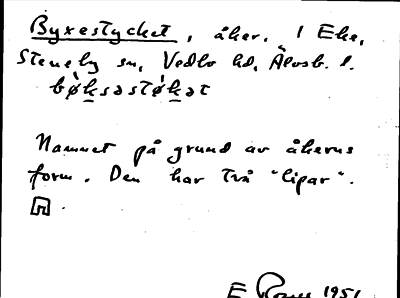 Byxestycket, åker, 1 Eke,
Steneby sn, Vedbo hd, Älvsb. l.
bỳksəstỳkət
Namnet på grund av åkerns
form. Den har två "lipar".
E 1951